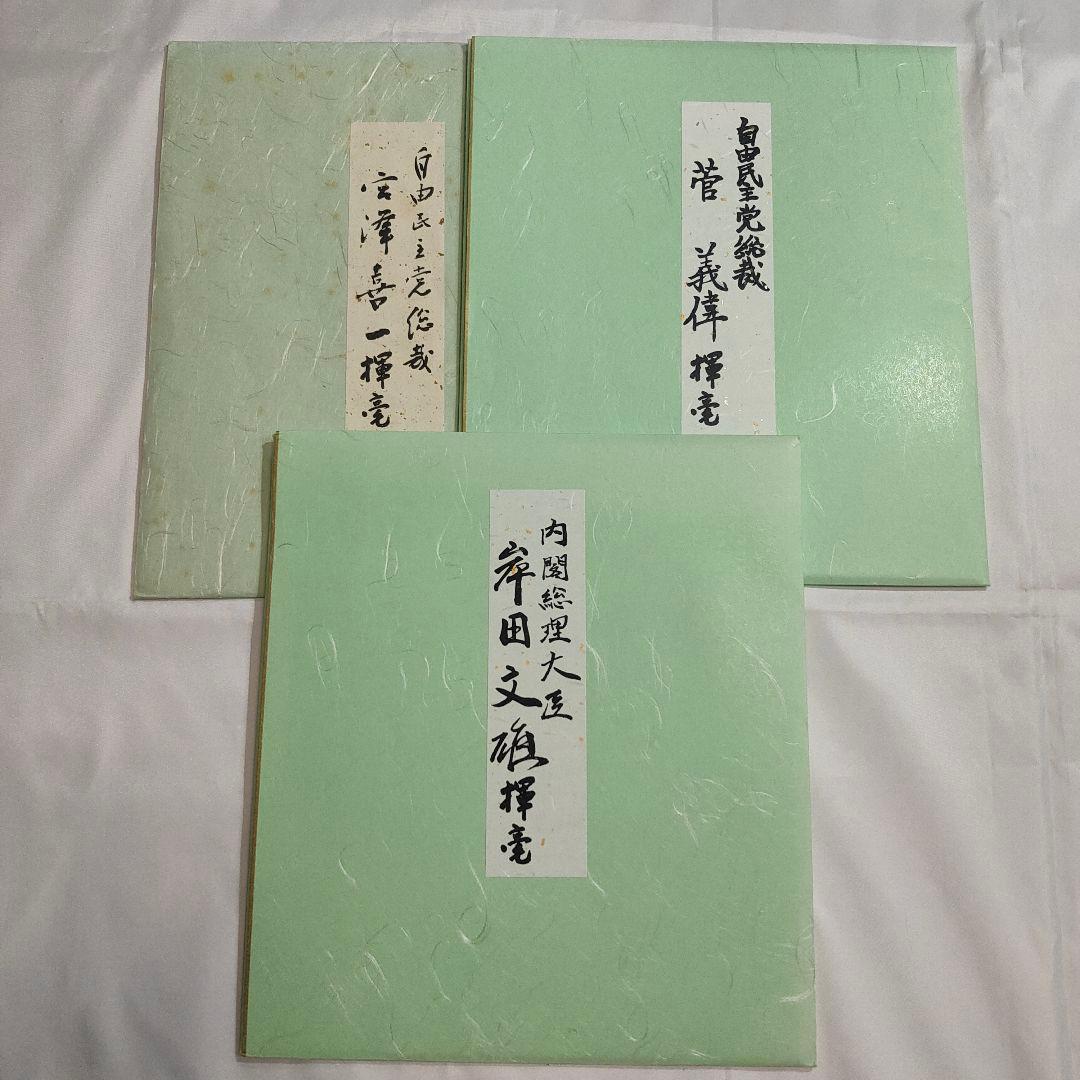 自由民主党総裁
宮澤喜一揮毫
自由民主党総裁
菅 義偉 揮毫
内閣総理大臣
岸田文雄揮毫